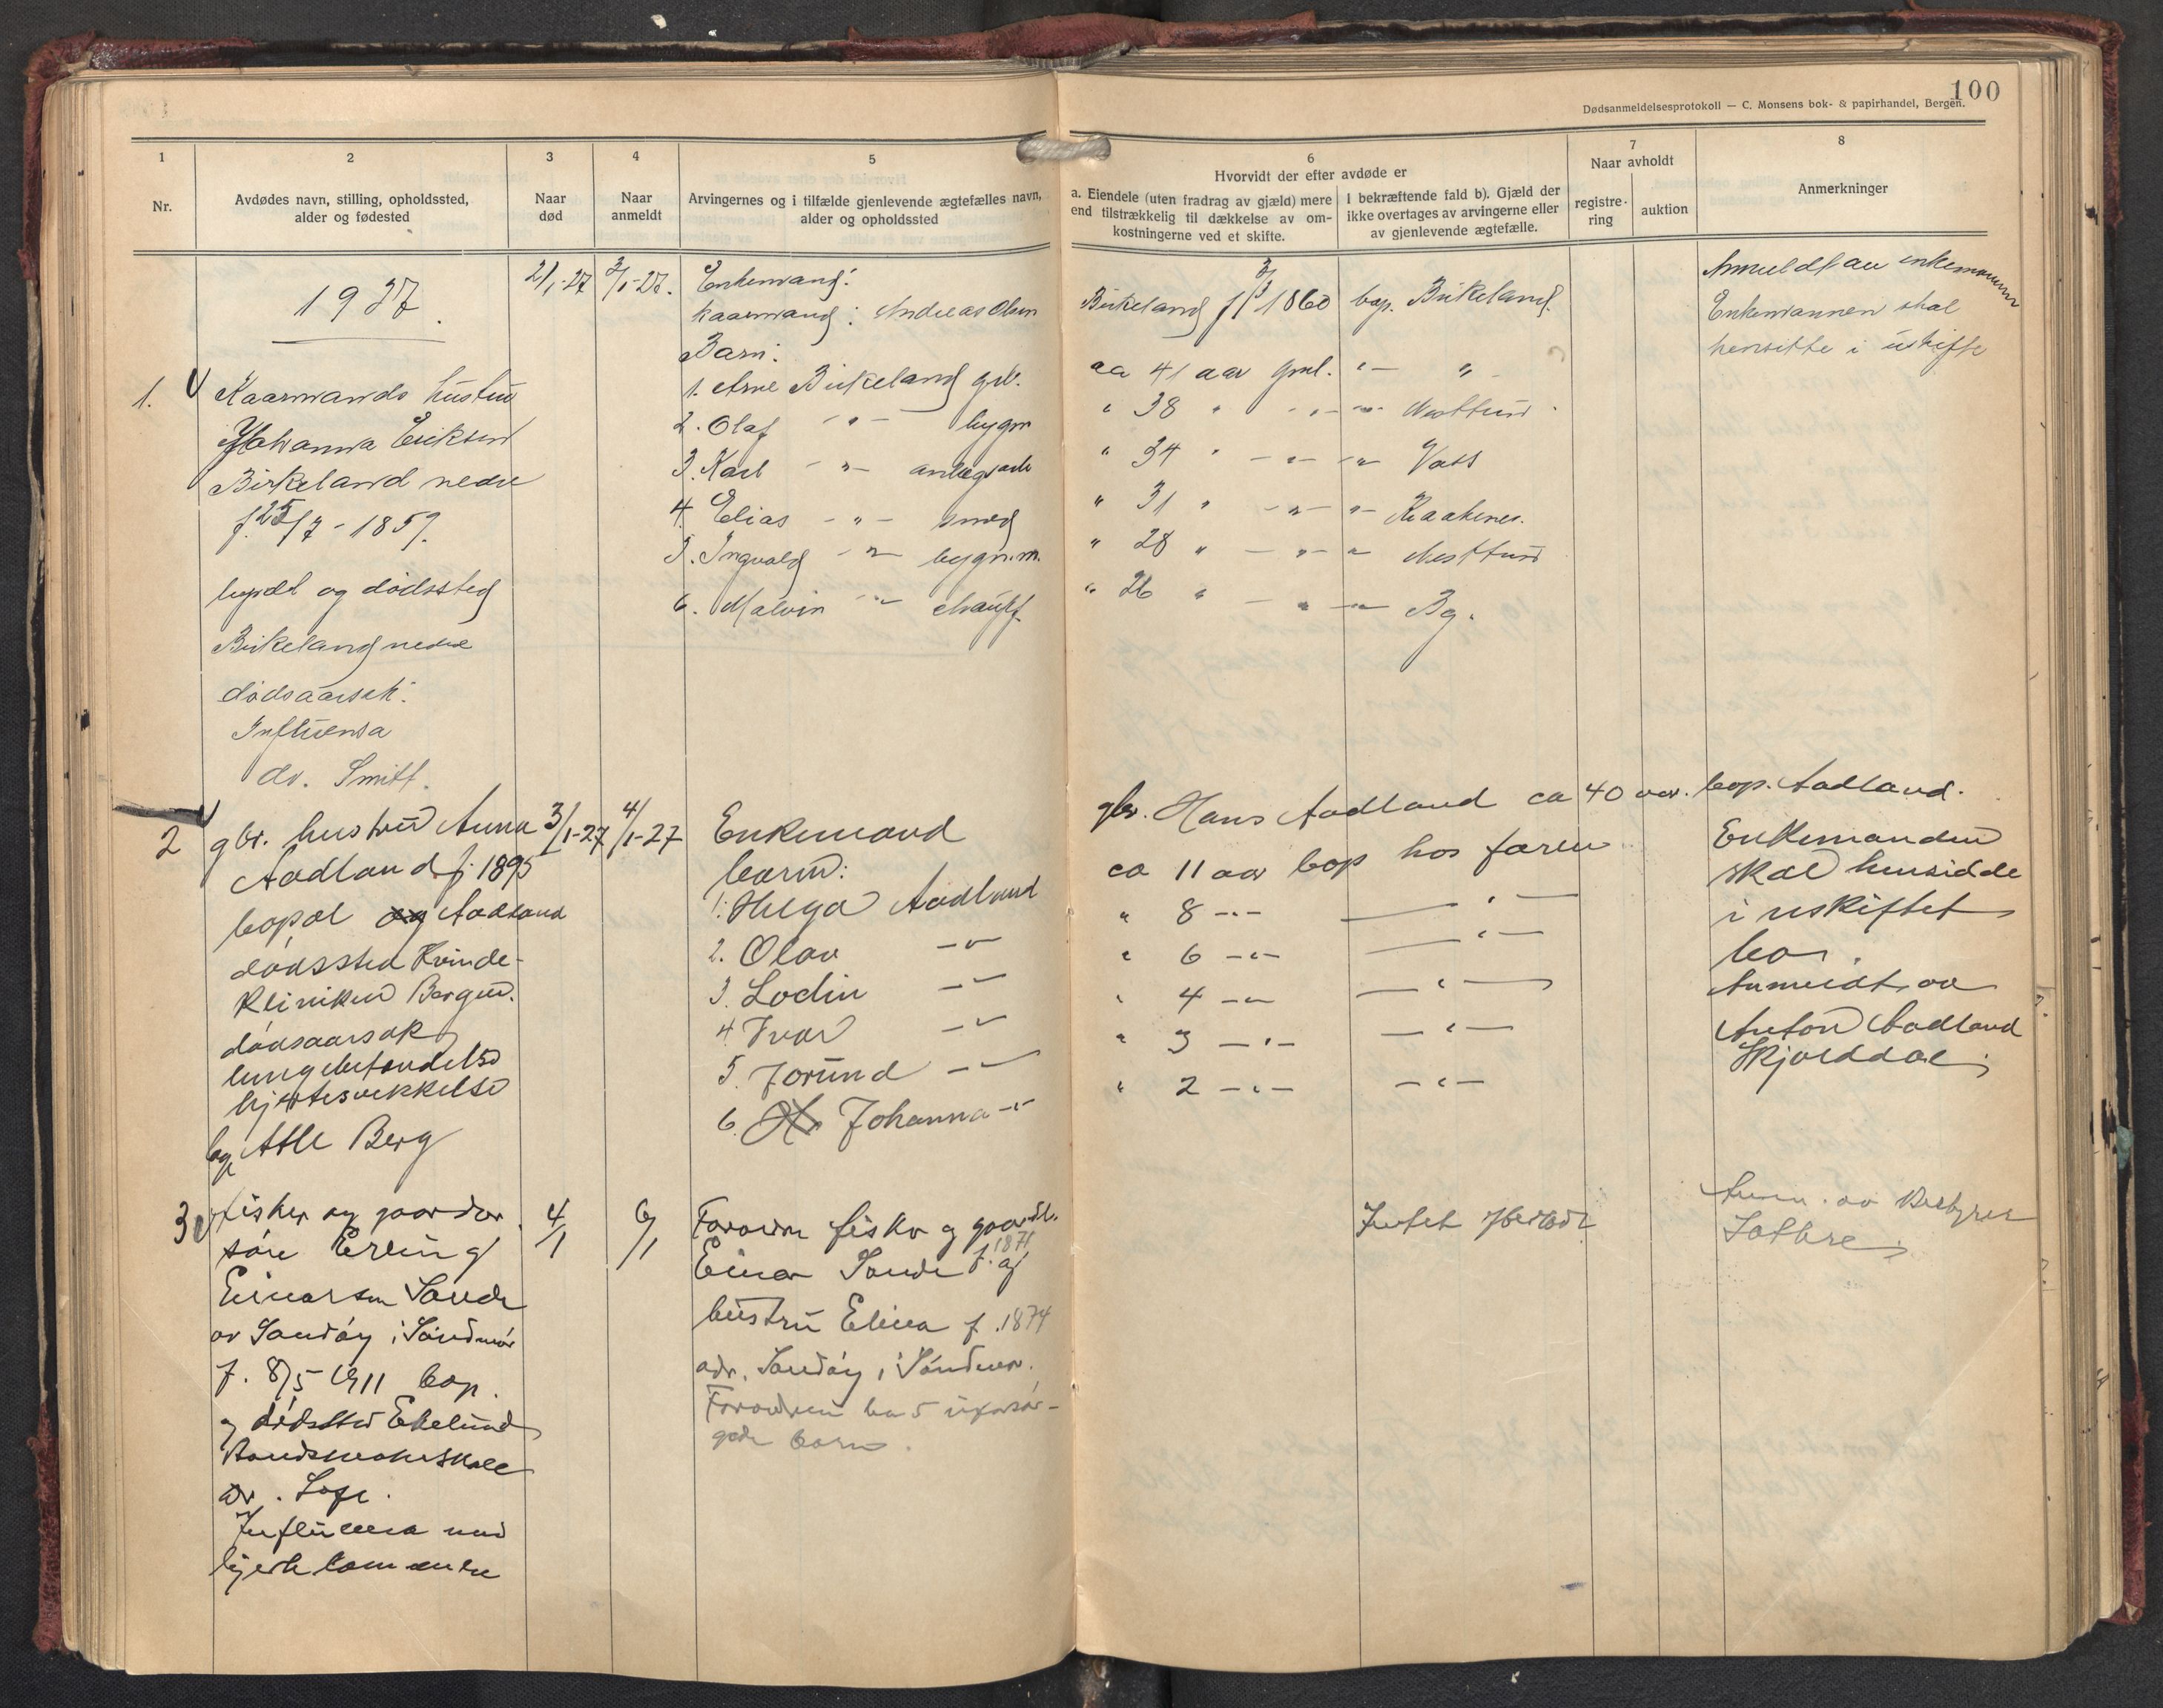 100
Dødsanmeldelsesprotokoll — C. Monsens bok- & papirhandel, Bergen.
1
Nr.
2
Avdødes navn, stilling, opholdssted,
alder og fødested
3
Naar
død
4
Naar
anmeldt
5
Arvingernes og i tilfælde gjenlevende ægtefælles navn,
alder og opholdssted
6
Hvorvidt der efter avdøde er
a. Eiendele (uten fradrag av gjæld) mere
end tilstrækkelig til dækkelse av om-
kostningerne ved et skifte.
I bekræftende fald b). Gjæld der
ikke overtages av arvingerne eller
av gjenlevende ægtefælle.
7
Naar avholdt
registre-
ring
auktion
8
Anmerkninger
1927.
1.
Kaarmands hustru
Johanna Eriksen
Birkeland nedre
f. 25/7 - 1859.
bopæl og dødssted
Birkeland nedre
dødsaarsak:
Influensa
dr. Smitt.
2/1-27
3/1-27.
Enkemand:
kaarmand: Andreas Olsen
Birkeland f 1860 bop. Birkeland.
Barn:
1. Arne Birkeland gbr.
aa 41 aar gml. " — " -
2. Olaf - " - bygm
" 38 " - " - " Nesttun
3. Karl - " - anlægsarb
" 34 " - " - " Voss
4. Elias - " - smed
" 31 " - " - "
5. Ingvald - " - bygn.m.
" 28 " - " - " Nesttun
6. Malvin - " - chauff.
" 26 " - " - " Bg.
Anmeldt av enkemannen
Enkemannen skal
hensitte i uskifte
2
gbr. hustru Anna
Aadland f. 1895
bopæl og Aadland
dødssted Kvinde-
kliniken Bergen.
dødsaarsak
lungebetændelse
hjertesvekkelse
Atle Berg
3/1-27
4/1-27
Enkemand
gbr. Hans Aadland ca 40 aar. bop. Aadland.
barn:
1. Helga Aadland
ca 11 aar bop hos faren
2. Olav - " -
" 8 - " - — " —
3. Lodin - " -
" 6 - " - — " —
4 Ivar - " -
" 4 - " - — " —
5. Jorund - " -
" 3 - " - — " —
6. Johanna - " -
" 2 - " - — " —
Enkemanden
skal hensidde
i uskiftet
bo.
Anmeldt av
Anton Aadland
Skjolddal
3
fisker og gaardbr
søn Erling
Einarsen Sande
av Sandøy i Søndmør
f. 8/5 1911 bop.
og dødssted Ekelund
Aandsvakeskole
dr.
Influensa med
4/1
6/1
Forældre fisker og gaardbr.
Einar Sande f. 1871 og
hustru Elina f. 1874
adr. Sandøy i Søndmør.
Forældrene har 5 uforsør-
gede barn.
Intet
Anm. av Bestyrer
Sætre